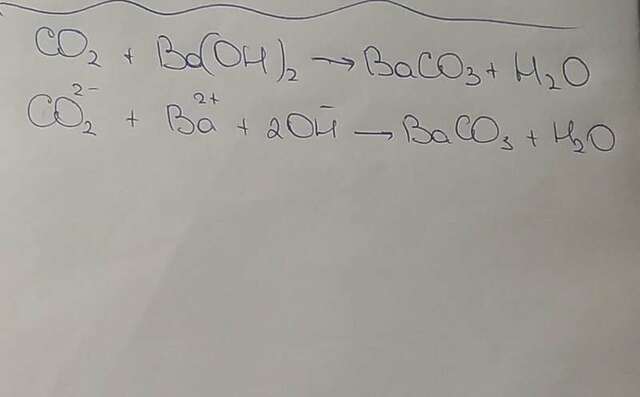 CO₂ + Ba(OH)₂ → BaCO₃ + H₂O
CO₂²⁻ + Ba²⁺ + 2OH⁻ → BaCO₃ + H₂O